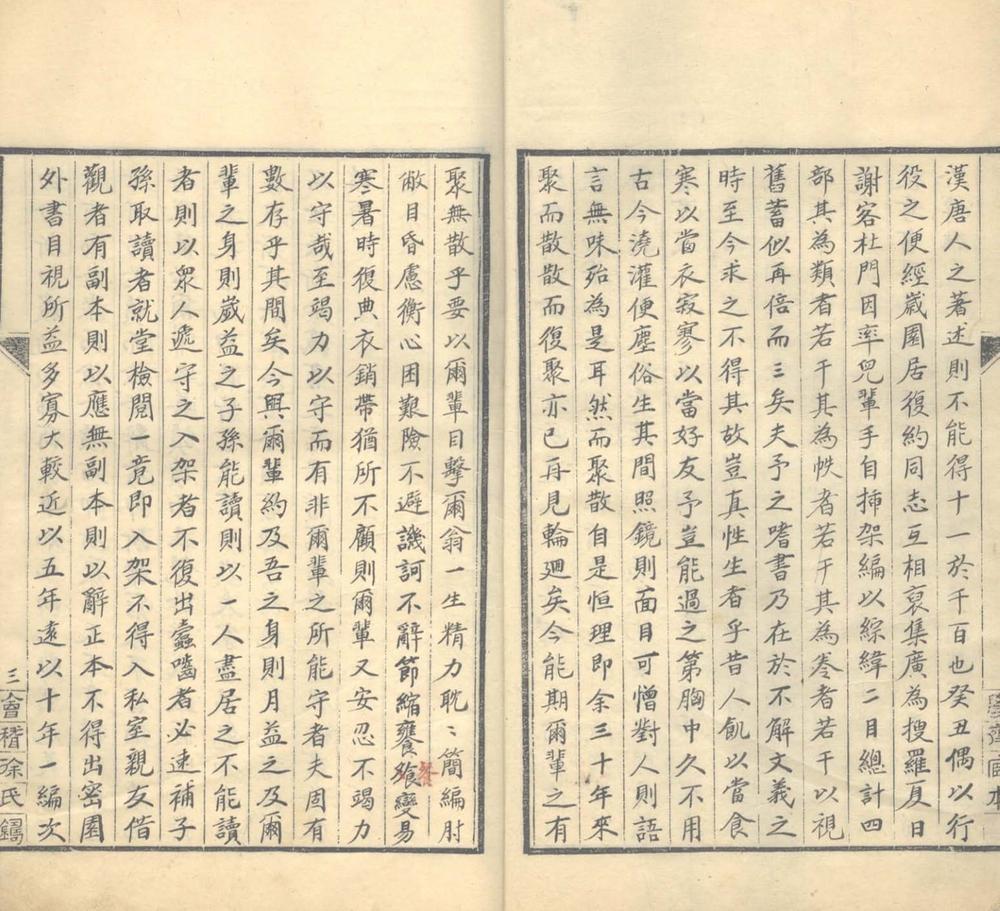 漢唐人之著述則不能得十一於千百也癸丑偶以行
役之便經歲園居復約同志互相裒集廣為搜羅夏日
謝客杜門因率兒輩手自揷架編以綜緯二目總計四
部其為類者若干其為帙者若干其為卷者若干以視
舊蓄似再倍而三矣夫予之嗜書乃在於不解文義之
時至今求之不得其故豈真性生者乎昔人飢以當食
寒以當衣寂寥以當好友予豈能過之第胸中久不用
古今澆灌便塵俗生其間照鏡則面目可憎對人則語
言無味殆為是耳然而聚散自是恒理即余三十年來
聚而散散而復聚亦已再見輪廻矣今能期爾輩之有
聚無散乎要以爾輩目擊爾翁一生精力耽〻簡編肘
敝目昏慮衡心困艱險不避譏訶不辭節縮饔飱變易
餐
寒暑時復典衣銷帶猶所不顧則爾輩又安忍不竭力
以守哉至竭力以守而有非爾輩之所能守者夫固有
數存乎其間矣今與爾輩約及吾之身則月益之及爾
輩之身則歲益之子孫能讀則以一人盡居之不能讀
者則以眾人遞守之入架者不復出蠹嚙者必速補子
孫取讀者就堂檢閱一竟即入架不得入私室親友借
觀者有副本則以應無副本則以辭正本不得出密園
外書目視所益多寡大較近以五年遠以十年一編次
三
會稽徐氏鑄